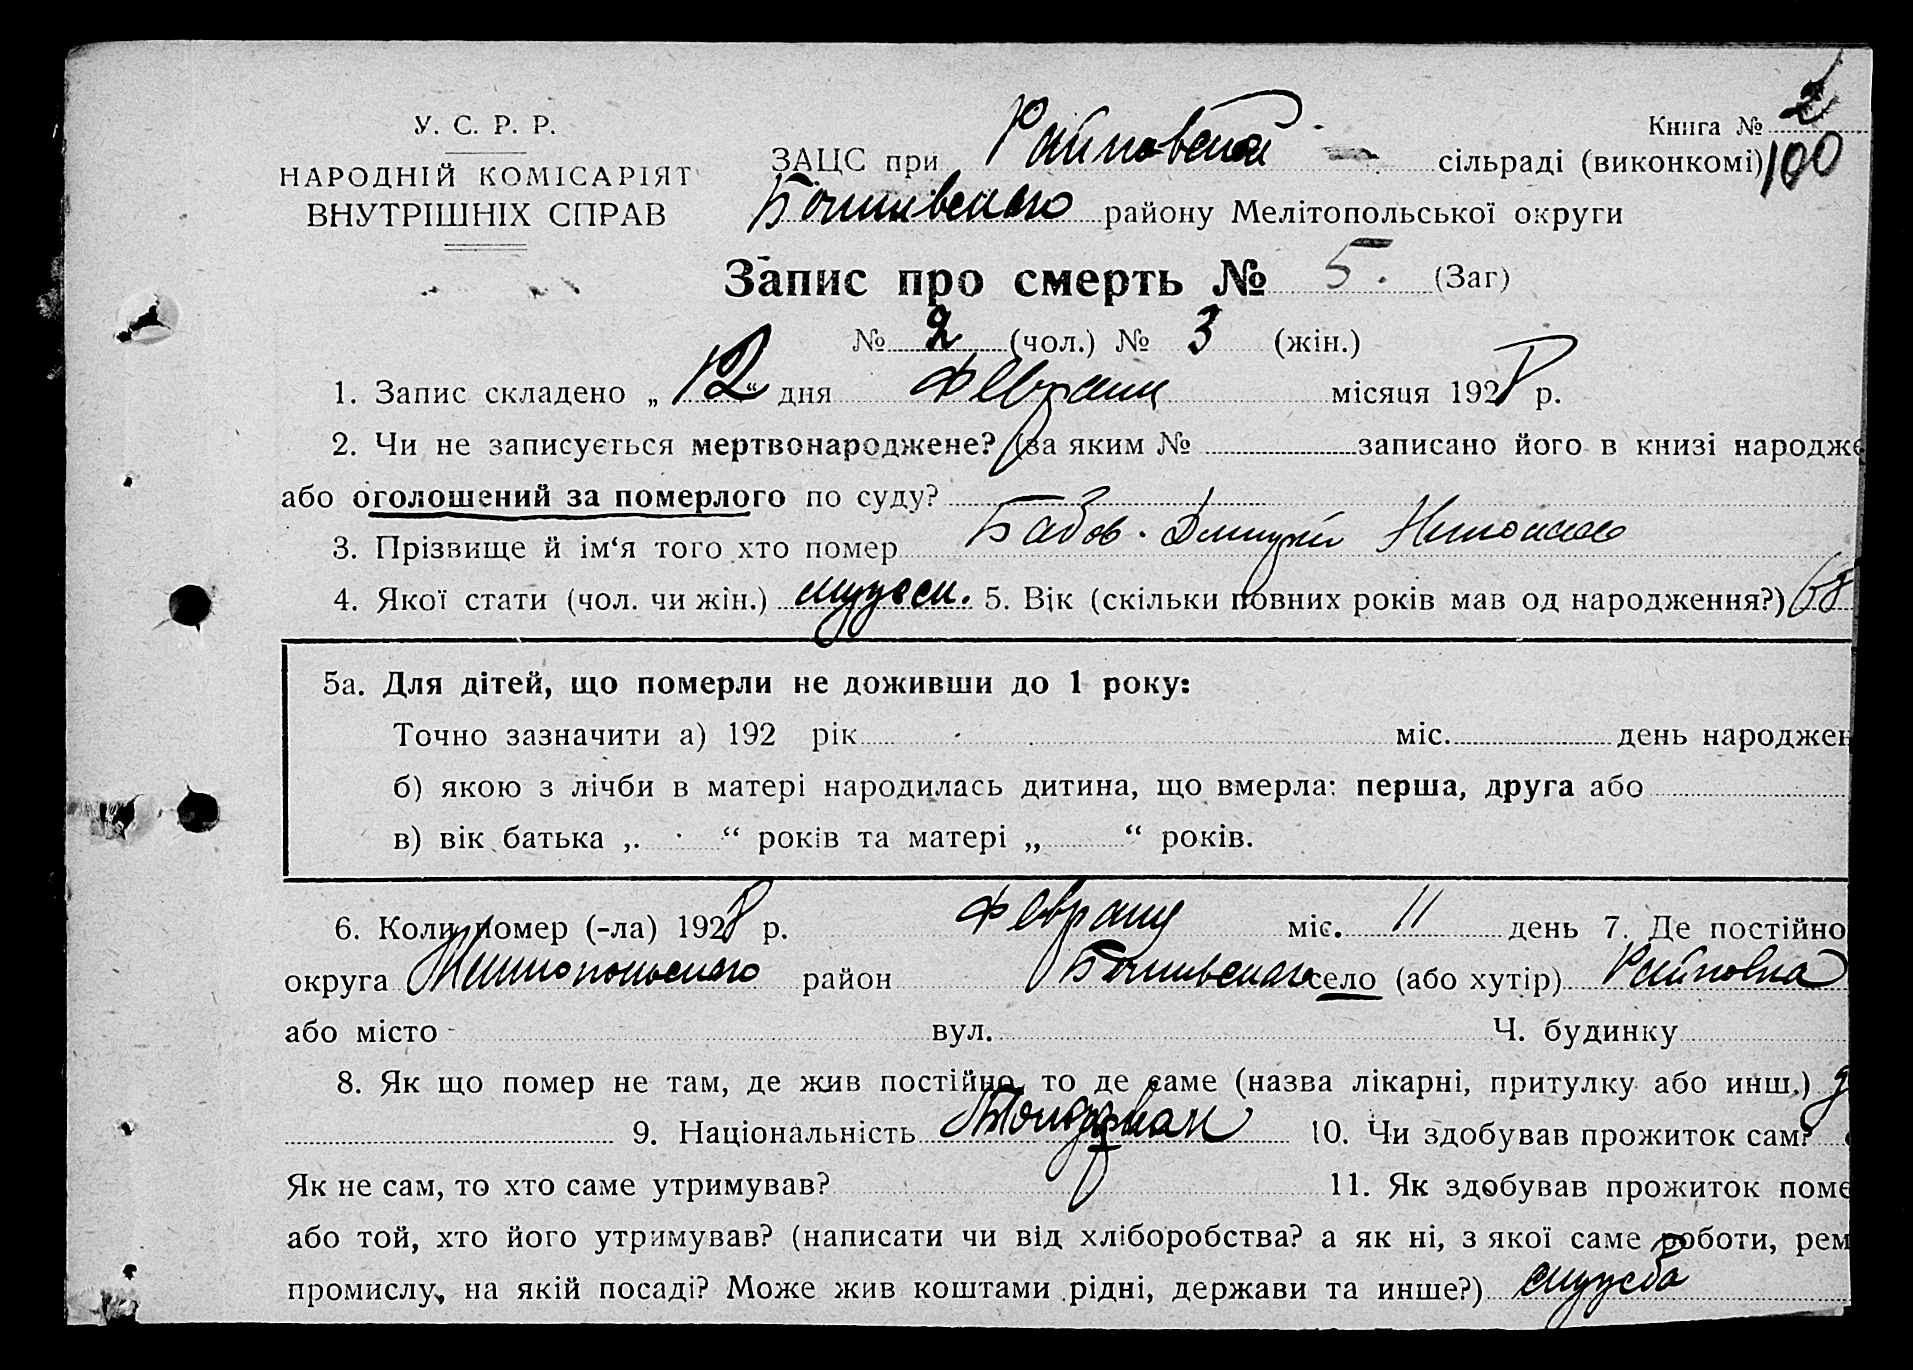 Книга № 2
У. С. Р. Р.
НАРОДНІЙ КОМІСАРІЯТ
ВНУТРІШНІХ СПРАВ
ЗАЦС при Райновской сільраді (виконкомі) 100
району Мелітопольської округи
Запис про смерть № 5. (Заг)
№ 2 (чол.) № 3 (жін.)
1. Запис складено „12“ дня Февраля місяця 1928 р.
2. Чи не записується мертвонароджене? (за яким № записано його в книзі народже
або оголошений за померлого по суду?
3. Прізвище й ім‘я того хто помер Бабов Дмитрий
4. Якої стати (чол. чи жін.) мужск. 5. Вік (скільки повних років мав од народження?) 68
5а. Для дітей, що померли не доживши до 1 року:
Точно зазначити а) 192 рік міс. день народжен
б) якою з лічби в матері народилась дитина, що вмерла: перша, друга або
в) вік батька „ “ років та матері „ “ років.
6. Коли помер (-ла) 1928 р. Февраля міс. 11 день 7. Де постійно
округа Мелитопольского район село (або хутір) Райновка
або місто вул. Ч. будинку
8. Як що помер не там, де жив постійно, то де саме (назва лікарні, притулку або инш.)
9. Національність 10. Чи здобував прожиток сам?
Як не сам, то хто саме утримував? 11. Як здобував прожиток поме
або той, хто його утримував? (написати чи від хліборобства? а як ні, з якої саме роботи, рем
промислу, на якій посаді? Може жив коштами рідні, держави та инше?) служба